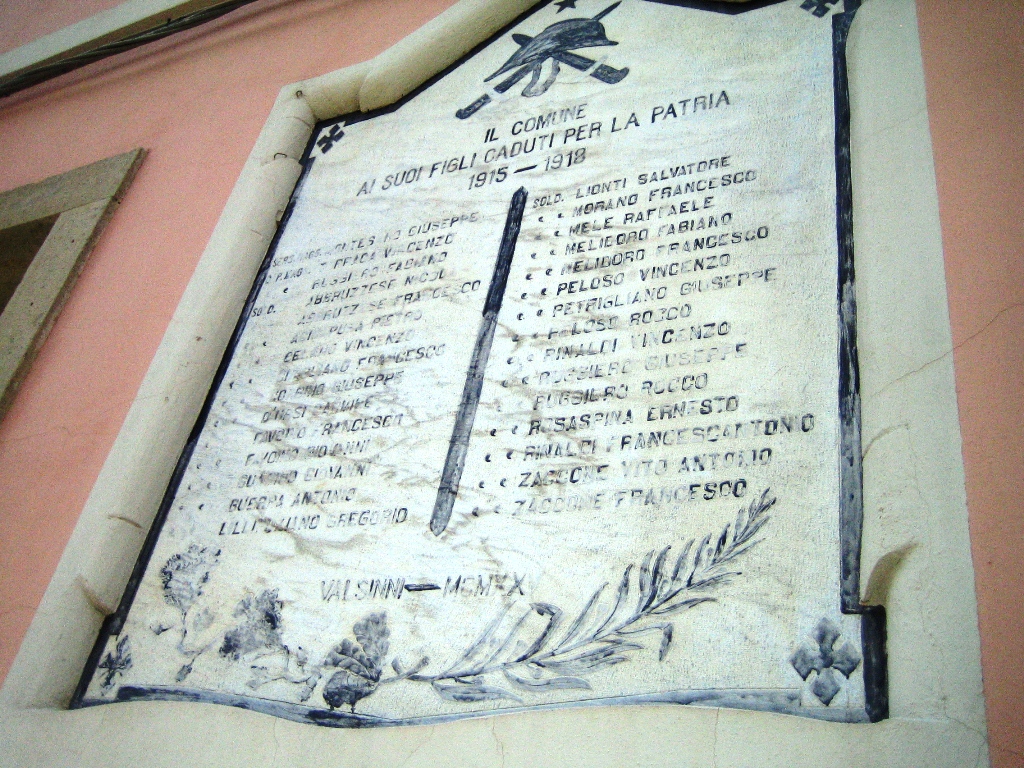 IL COMUNE
AI SUOI FIGLI CADUTI PER LA PATRIA
1915 — 1918
GIUSEPPE
VINCENZO
RUSSIERO FABIANO
SOLD. ABBRUZZESE NICOLA
ABBRUZZESE FRANCESCO
PIETRO
CELANO VINCENZO
FRANCESCO
GIUSEPPE
D'ORSI
FAVOINO FRANCESCO
FAVOINO GIOVANNI
GUARINO GIOVANNI
GUERRA ANTONIO
GREGORIO
SOLD. LIONTI SALVATORE
" MORANO FRANCESCO
" MELE RAFFAELE
" MELIDORO FABIANO
" MELIDORO FRANCESCO
" PELOSO VINCENZO
" PETRIGLIANO GIUSEPPE
" PELOSO ROCCO
" RINALDI VINCENZO
" RUSSIERO GIUSEPPE
RUSSIERO ROCCO
" ROSASPINA ERNESTO
" RINALDI FRANCESCANTONIO
" ZACCONE VITO ANTONIO
" ZACCONE FRANCESCO
VALSINNI — MCMXX